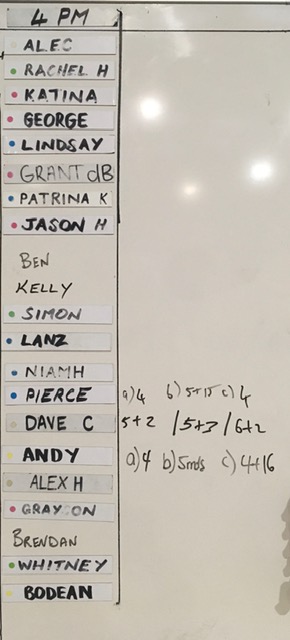 4 PM
ALEC
RACHEL H
KATINA
GEORGE
LINDSAY
GRANT dB
PATRINA K
JASON H
BEN
KELLY
SIMON
LANZ
NIAMH
PIERCE a) 4 b) 5+15 c) 4
DAVE C 5+2 / 5+3 / 6+2
ANDY a) 4 b) 5rnds c) 4+16
ALEX H
GRAYSON
BRENDAN
WHITNEY
BODEAN